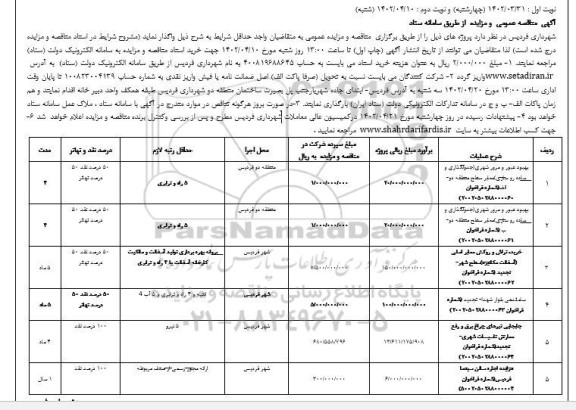 نوبت اول : ۱۴۰۲/۰۳/۳۱ (چهارشنبه) و نوبت دوم : ۱۴۰۲/۰۴/۱۰ (شنبه)
آگهی مناقصه عمومی و مزایده از طریق سامانه ستاد
شهرداری فردیس در نظر دارد پروژه های ذیل را از طریق برگزاری مناقصه و مزایده عمومی به متقاضیان واجد حداقل شرایط به شرح ذیل واگذار نماید (مشروح شرایط در اسناد مناقصه و مزایده
درج شده است) لذا متقاضیان می توانند از تاریخ انتشار آگهی (چاپ اول) تا ساعت ۱۳:۰۰ روز شنبه مورخ ۱۴۰۲/۰۴/۱۰ جهت خرید اسناد مناقصه و مزایده به سامانه الکترونیک دولت (ستاد)
مراجعه نمایند. ۱- مبلغ ۲/۰۰۰/۰۰۰ ریال به عنوان هزینه خرید اسناد می بایست به حساب ۴۰۰۸۱۹۶۸۸۶۴۵ به نام شهرداری فردیس از طریق سامانه الکترونیک دولت (ستاد) به آدرس
www.setadiran.ir واریز گردد ۲- شرکت کنندگان می بایست نسبت به تحویل (صرفا پاکت الف) اصل ضمانت نامه یا فیش واریز نقدی به شماره حساب ۱۰۰۸۲۳۰۰۴۱۳۹ تا پایان وقت
اداری ساعت ۱۳:۰۰ مورخ ۱۴۰۲/۰۴/۲۰ سه شنبه به آدرس فردیس-
زمان پاکات الف- ب و ج در سامانه تدارکات الکترونیکی دولت (ستاد ایران) بارگذاری نمایند. ۳-در صورت بروز هرگونه تناقض در موارد مندرج در آگهی با سامانه ستاد ، ملاک عمل سامانه ستاد
خواهد بود ۴- پیشنهادات رسیده در روز چهارشنبه مورخ ۱۴۰۲/۰۴/۲۱ درکمیسیون عالی معاملات شهرداری فردیس مطرح و پس از بررسی وکنترل برنده مناقصه و مزایده اعلام خواهد شد ۶-
جهت کسب اطلاعات بیشتر به سایت www.shahrdarifardis.ir مراجعه نمایید .
ردیف شرح عملیات برآورد مبلغ ریالی پروژه مبلغ سپرده شرکت در مناقصه و مزایده به ریال محل اجرا حداقل رتبه لازم درصد نقد و تهاتر مدت
۱ بهبود عبور و مرور شهری ۲۰/۰۰۰/۰۰۰/۰۰۰ ۱/۰۰۰/۰۰۰/۰۰۰ منطقه دو فردیس ۵ راه و ترابری ۵۰ درصد نقد ۵۰ درصد تهاتر ۴
۲ بهبود عبور و مرور شهری ۲۰/۰۰۰/۰۰۰/۰۰۰ ۱/۰۰۰/۰۰۰/۰۰۰ منطقه دو فردیس ۵ راه و ترابری ۵۰ درصد نقد ۵۰ درصد تهاتر ۴
۳ شهر فردیس پروانه بهره برداری تولید آسفالت و مالکیت کارخانه آسفالت یا ۴ راه و ترابری ۵۰ درصد نقد ۵۰ درصد تهاتر ۵ ماه
۴ ۱۰۰/۰۰۰/۰۰۰/۰۰۰ ۵/۰۰۰/۰۰۰/۰۰۰ شهر فردیس ۵۰ درصد نقد ۵۰ درصد تهاتر ۵ ماه
۵ جابجایی تیرهای چراغ برق و رفع ۱۳/۶۱۱/۱۷۵/۹۰۸ ۶۸۰/۵۵۸/۷۹۶ شهر فردیس ۵ نیرو ۱۰۰ درصد نقد ۴ ماه
۵ مزایده اجاره سالن سینما ۶/۰۰۰/۰۰۰/۰۰۰ ۳۰۰/۰۰۰/۰۰۰ شهر فردیس ۱۰۰ درصد نقد ۱ سال
ParsNamadData
پایگاه اطلاع رسانی مناقصه و مزایده
۰۲۱-۸۸۳۴۹۶۷۰-۵